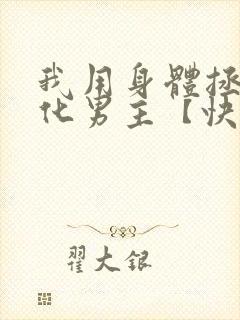 我用身體拯
化男主【快
翟大銀